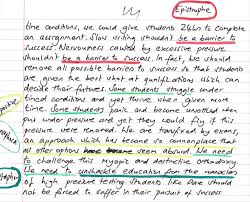 Epistrophe
time conditions, we could give students 24hr to complete
an assignment. Slow writing shouldn't be a barrier to
success. Nervousness caused by excessive pressure
shouldn't be a barrier to success. In fact, we should
remove all possible barriers to success so that students
are given the best shot at qualifications which can
decide their futures. Some students struggle under
timed conditions and yet thrive when given more
time. Some students panic and become
when
put under pressure and yet they would fly if this
pressure were removed. We are transfixed by exams,
an approach which has become so commonplace that
all other options have become seen absurd. We need
to challenge this myopic and destructive orthodoxy.
We need to unshackle education from the
of high pressure testing. Students like
should not
be forced to suffer in their pursuit of success.